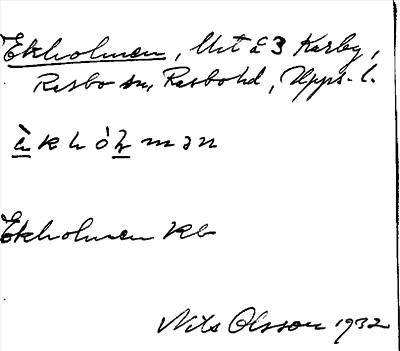 Ekholmen, Unt å 3 Karby,
Rasbo sn, Rasbo hd, Upps. l.
èkhólmən
Ekholmen
Nils Olsson 1932